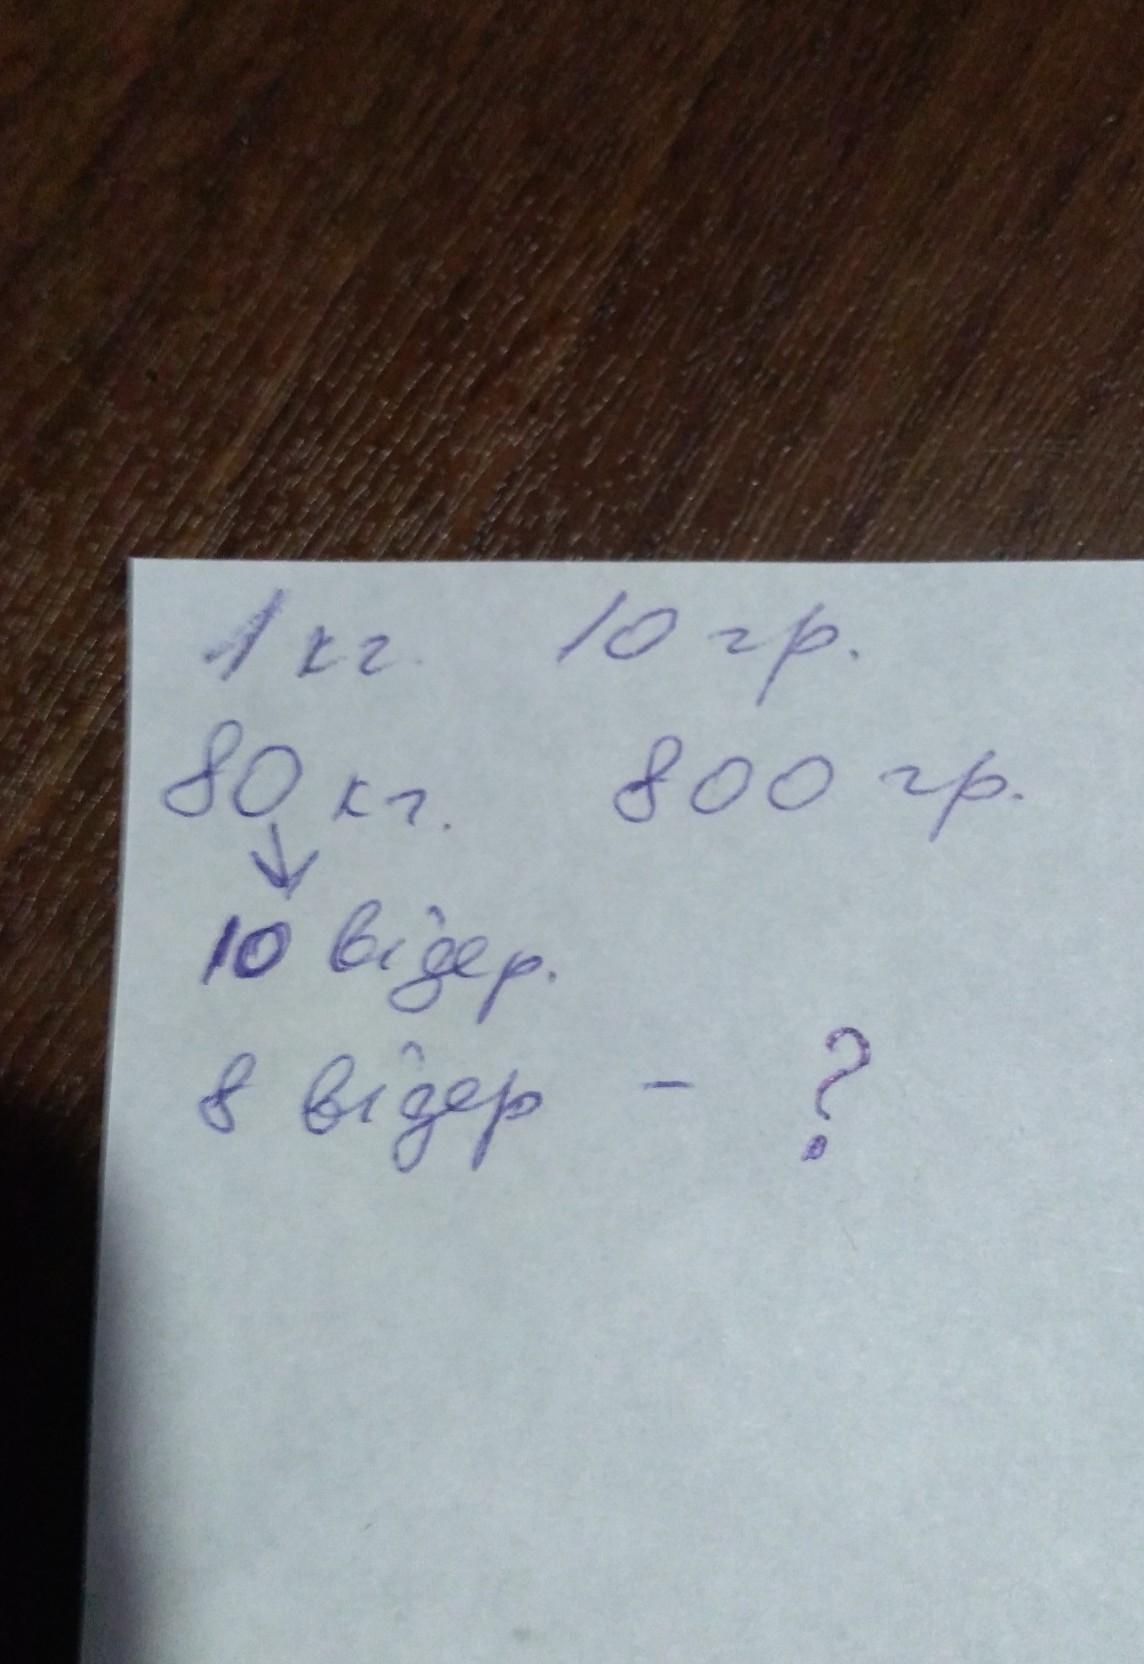 1 кг. 10 гр.
80 кг. 800 гр.
10 відер.
8 відер - ?